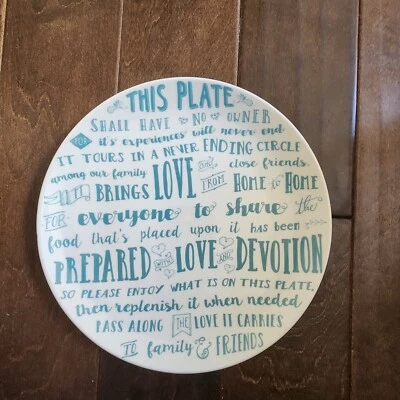 THIS PLATE
SHALL HAVE NO OWNER
FOR its experiences will never end
IT TOURS IN A NEVER ENDING CIRCLE
among our family and close friends.
IT BRINGS LOVE FROM HOME TO HOME
FOR everyone to share the
food that's placed upon it has been
PREPARED WITH LOVE AND DEVOTION
SO PLEASE ENJOY WHAT IS ON THIS PLATE,
then replenish it when needed
PASS ALONG THE LOVE IT CARRIES
TO family & FRIENDS